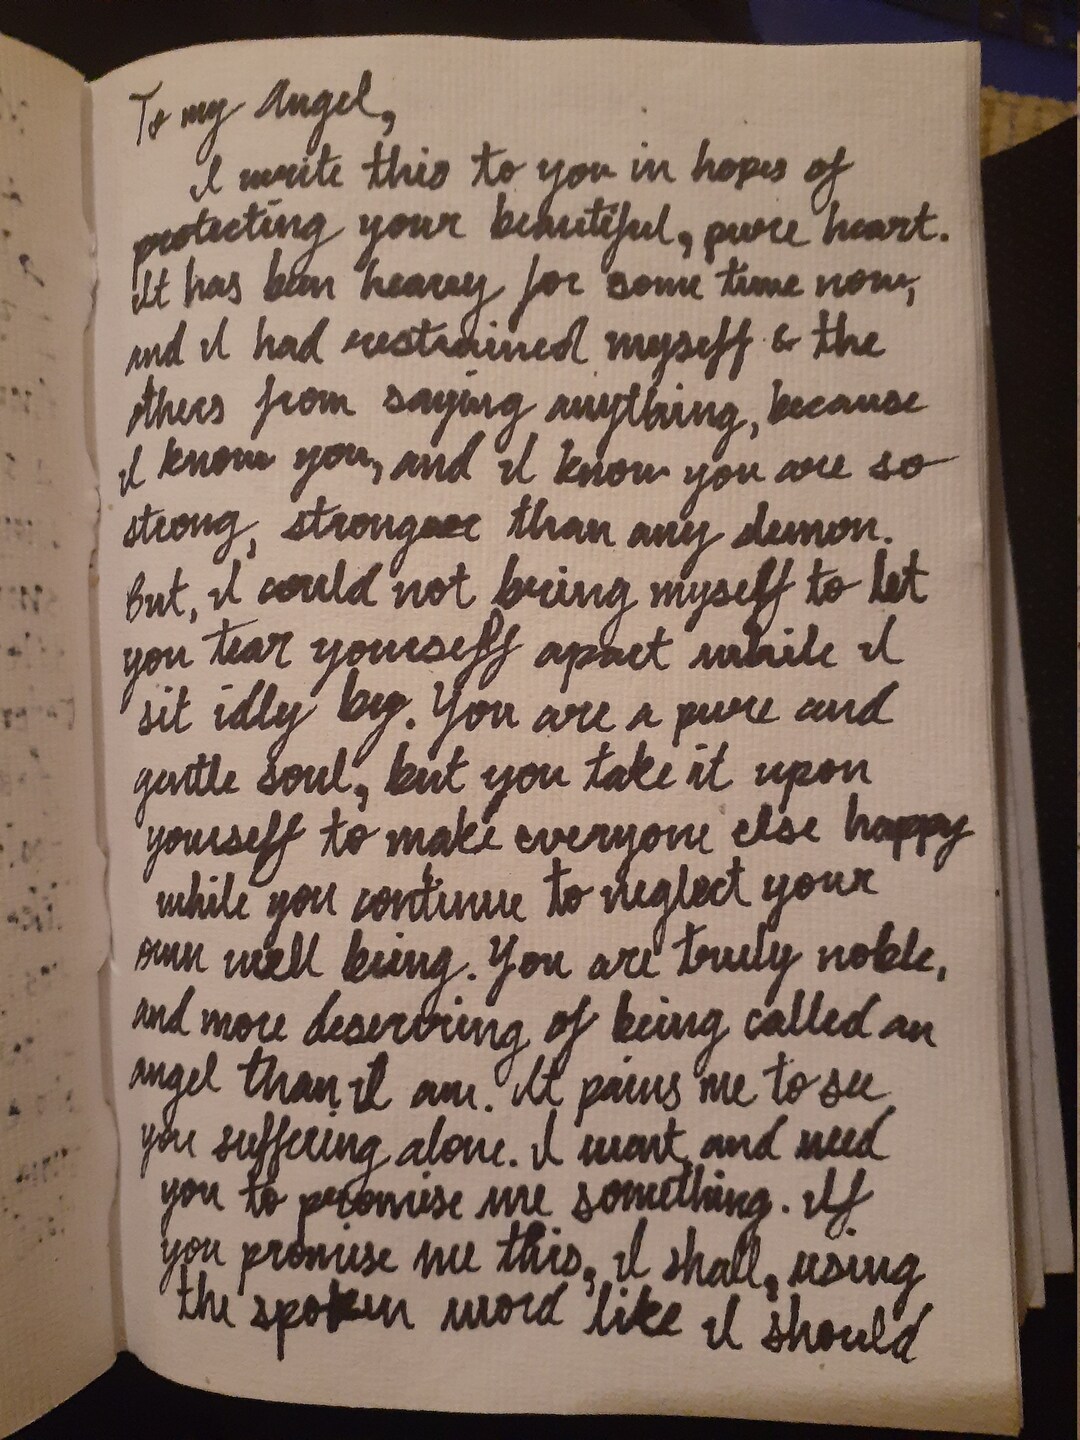 To my Angel,
I write this to you in hopes of
protecting your beautiful, pure heart.
It has been heavy for some time now,
and I had restrained myself & the
others from saying anything, because
I know you, and I know you are so
strong, stronger than any demon.
But, I could not bring myself to let
you tear yourself apart while I
sit idly by. You are a pure and
gentle soul, but you take it upon
yourself to make everyone else happy
while you continue to neglect your
own well being. You are truly noble,
and more deserving of being called an
angel than I am. It pains me to see
you suffering alone. I want and need
you to promise me something. If
you promise me this, I shall, using
the spoken word like I should